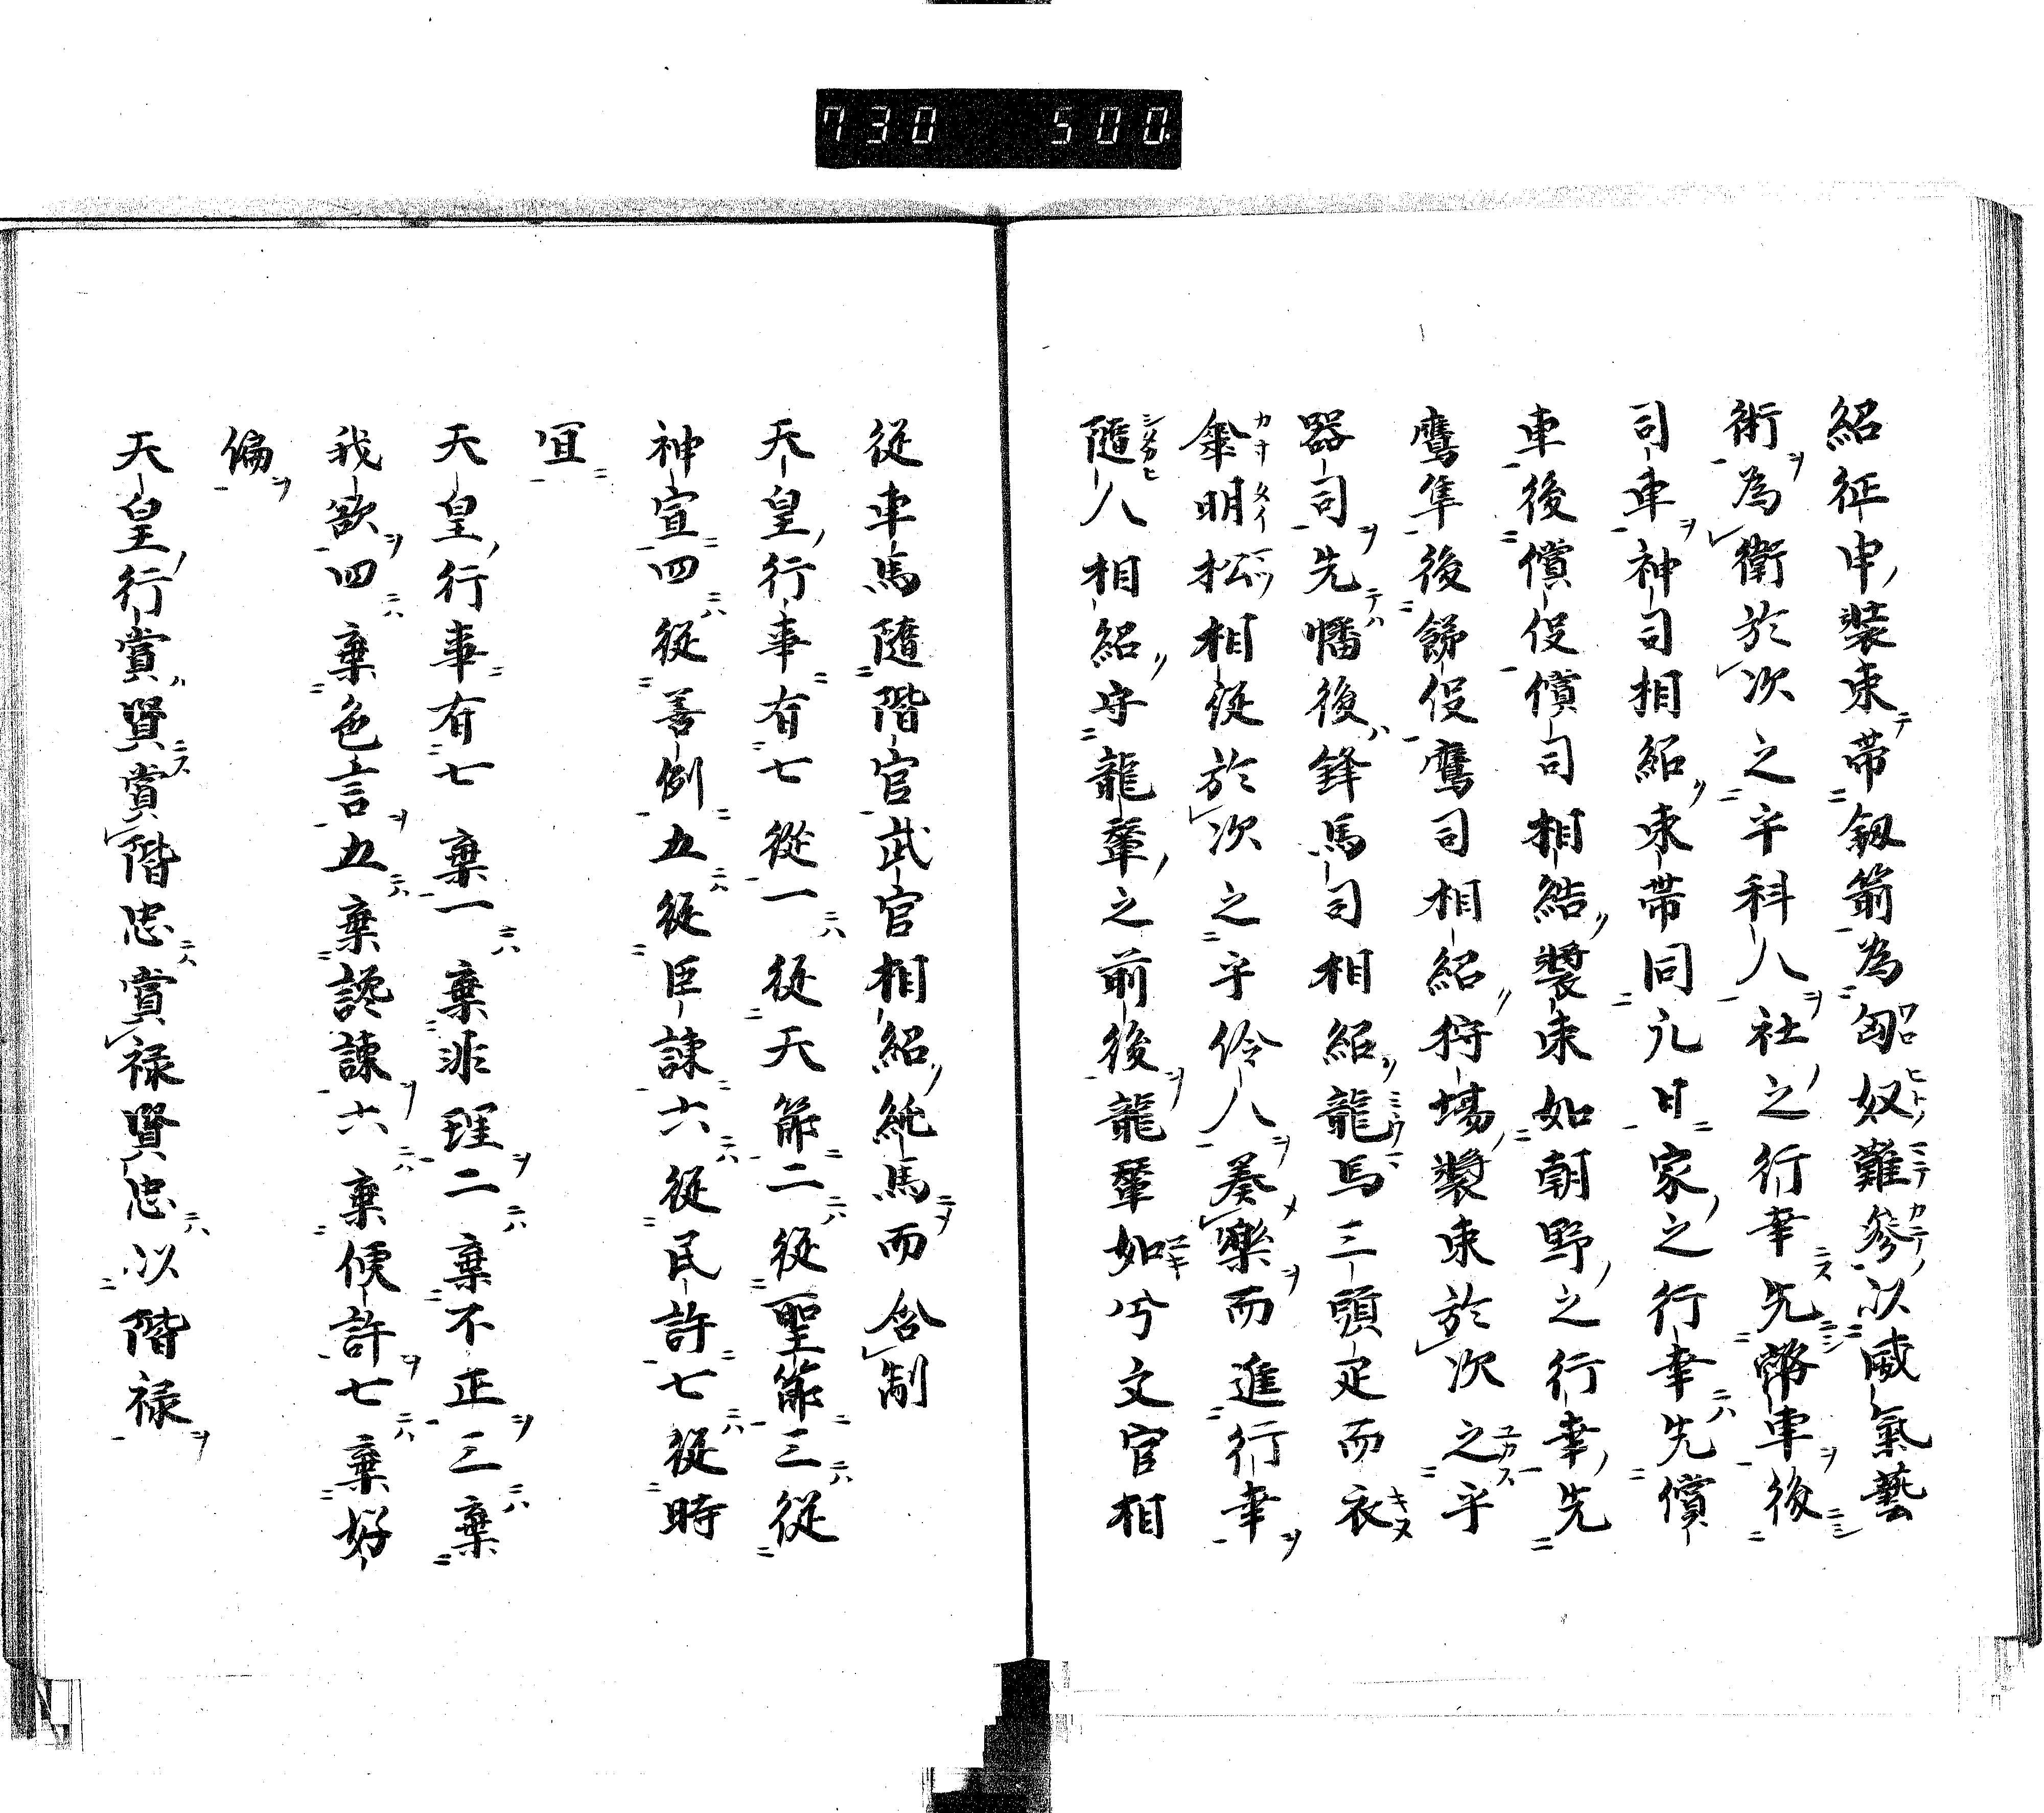 730 500.
紹征申装束帯釼箭為匈奴難参以威氣藝
術為衛於次之乎科人社之行幸先幣車後
司車神司相紹束帯同凡日家之行幸先償
車後償伇償司相結装束如朝野之行幸先
鷹隼後餝伇鷹司相紹狩場装束於次之乎
器司先幡後鋒馬司相紹龍馬三頭疋而衣
傘明松相従於次之乎伶人奏樂而進行幸
隨人相紹守龍輦之前後龍輦如兮文官相
従車馬隨階官武官相紹純馬而含制
天皇行事有七従一従天節二従聖節三従
神宣四従善例五従臣諌六従民許七従時
宜
天皇行事有七棄一棄非理二棄不正三棄
我欲四棄色言五棄讒諌六棄倿許七棄好
偏
天皇行賞賢賞階忠賞禄賢忠以階禄